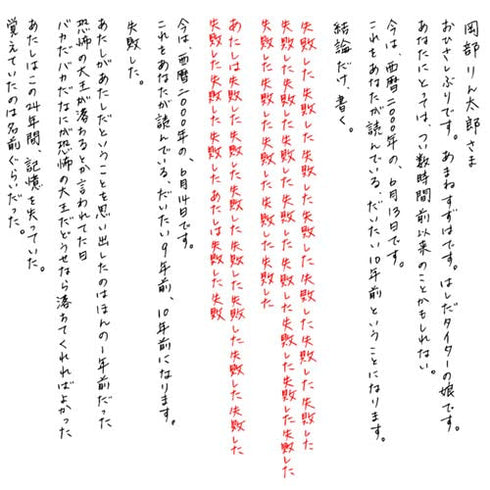 岡部りん太郎さま
おひさしぶりです。あまねすずはです。はしだタイターの娘です。
あなたにとっては、つい数時間前以来のことかもしれない。
今は、西暦二〇〇〇年の、6月13日です。
これをあなたが読んでいる、だいたい10年前ということになります。
結論だけ、書く。
失敗した失敗した失敗した失敗した失敗した失敗した失敗した
失敗した失敗した失敗した失敗した失敗した失敗した失敗した
失敗した失敗した失敗した失敗した
あたしは失敗した失敗した失敗した失敗した失敗した失敗した
失敗した失敗した失敗した あたしは失敗した失敗
今は、西暦二〇〇〇年の、6月14日です。
これをあなたが読んでいる、だいたい9年前、10年前になります。
失敗した。
あたしがあたしだということを思い出したのはほんの1年前だった
恐怖の大王が落ちるとか言われてた日
バカだバカだなにが恐怖の大王だどうせなら落ちてくれればよかった
あたしはこの24年間、記憶を失っていた。
覚えていたのは名前ぐらいだった。